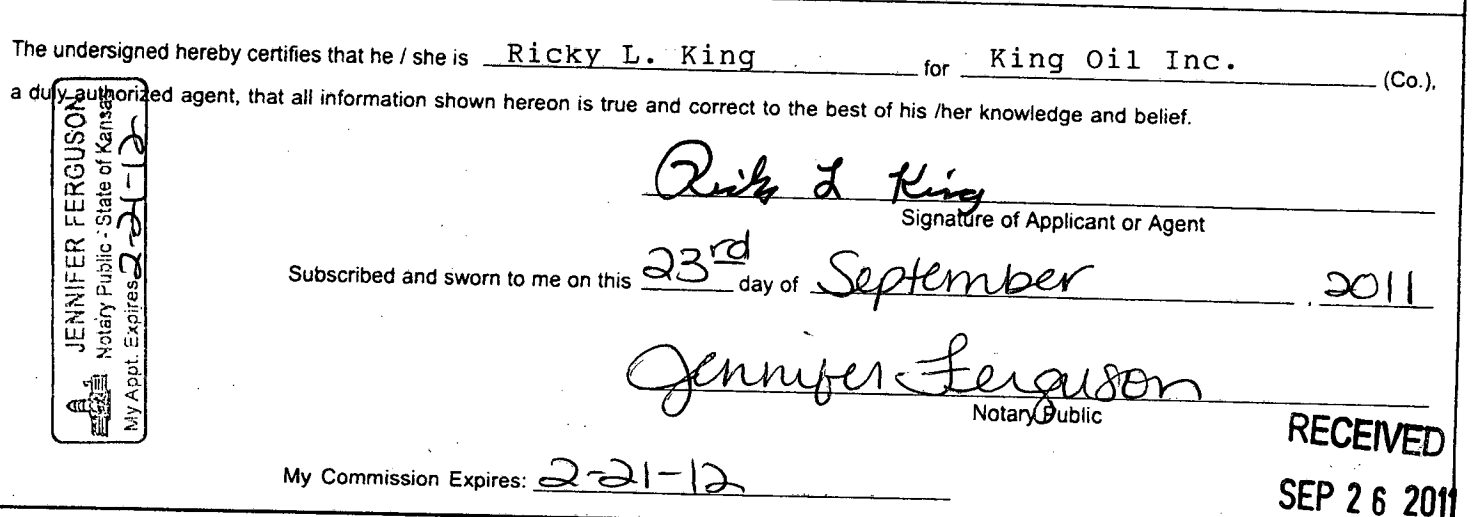 The undersigned hereby certifies that he / she is Ricky L. King for King Oil Inc. (Co.),
a duly authorized agent, that all information shown hereon is true and correct to the best of his /her knowledge and belief.
JENNIFER FERGUSON
Notary Public - State of Kansas
My Appt. Expires 2-21-12
Rick L King
Signature of Applicant or Agent
Subscribed and sworn to me on this 23rd day of September, 2011
Jennifer Ferguson
Notary Public
RECEIVED
My Commission Expires: 2-21-12
SEP 26 2011